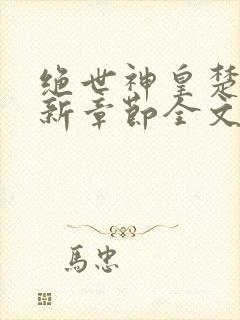 绝世神皇楚
新章节全文
馬忠